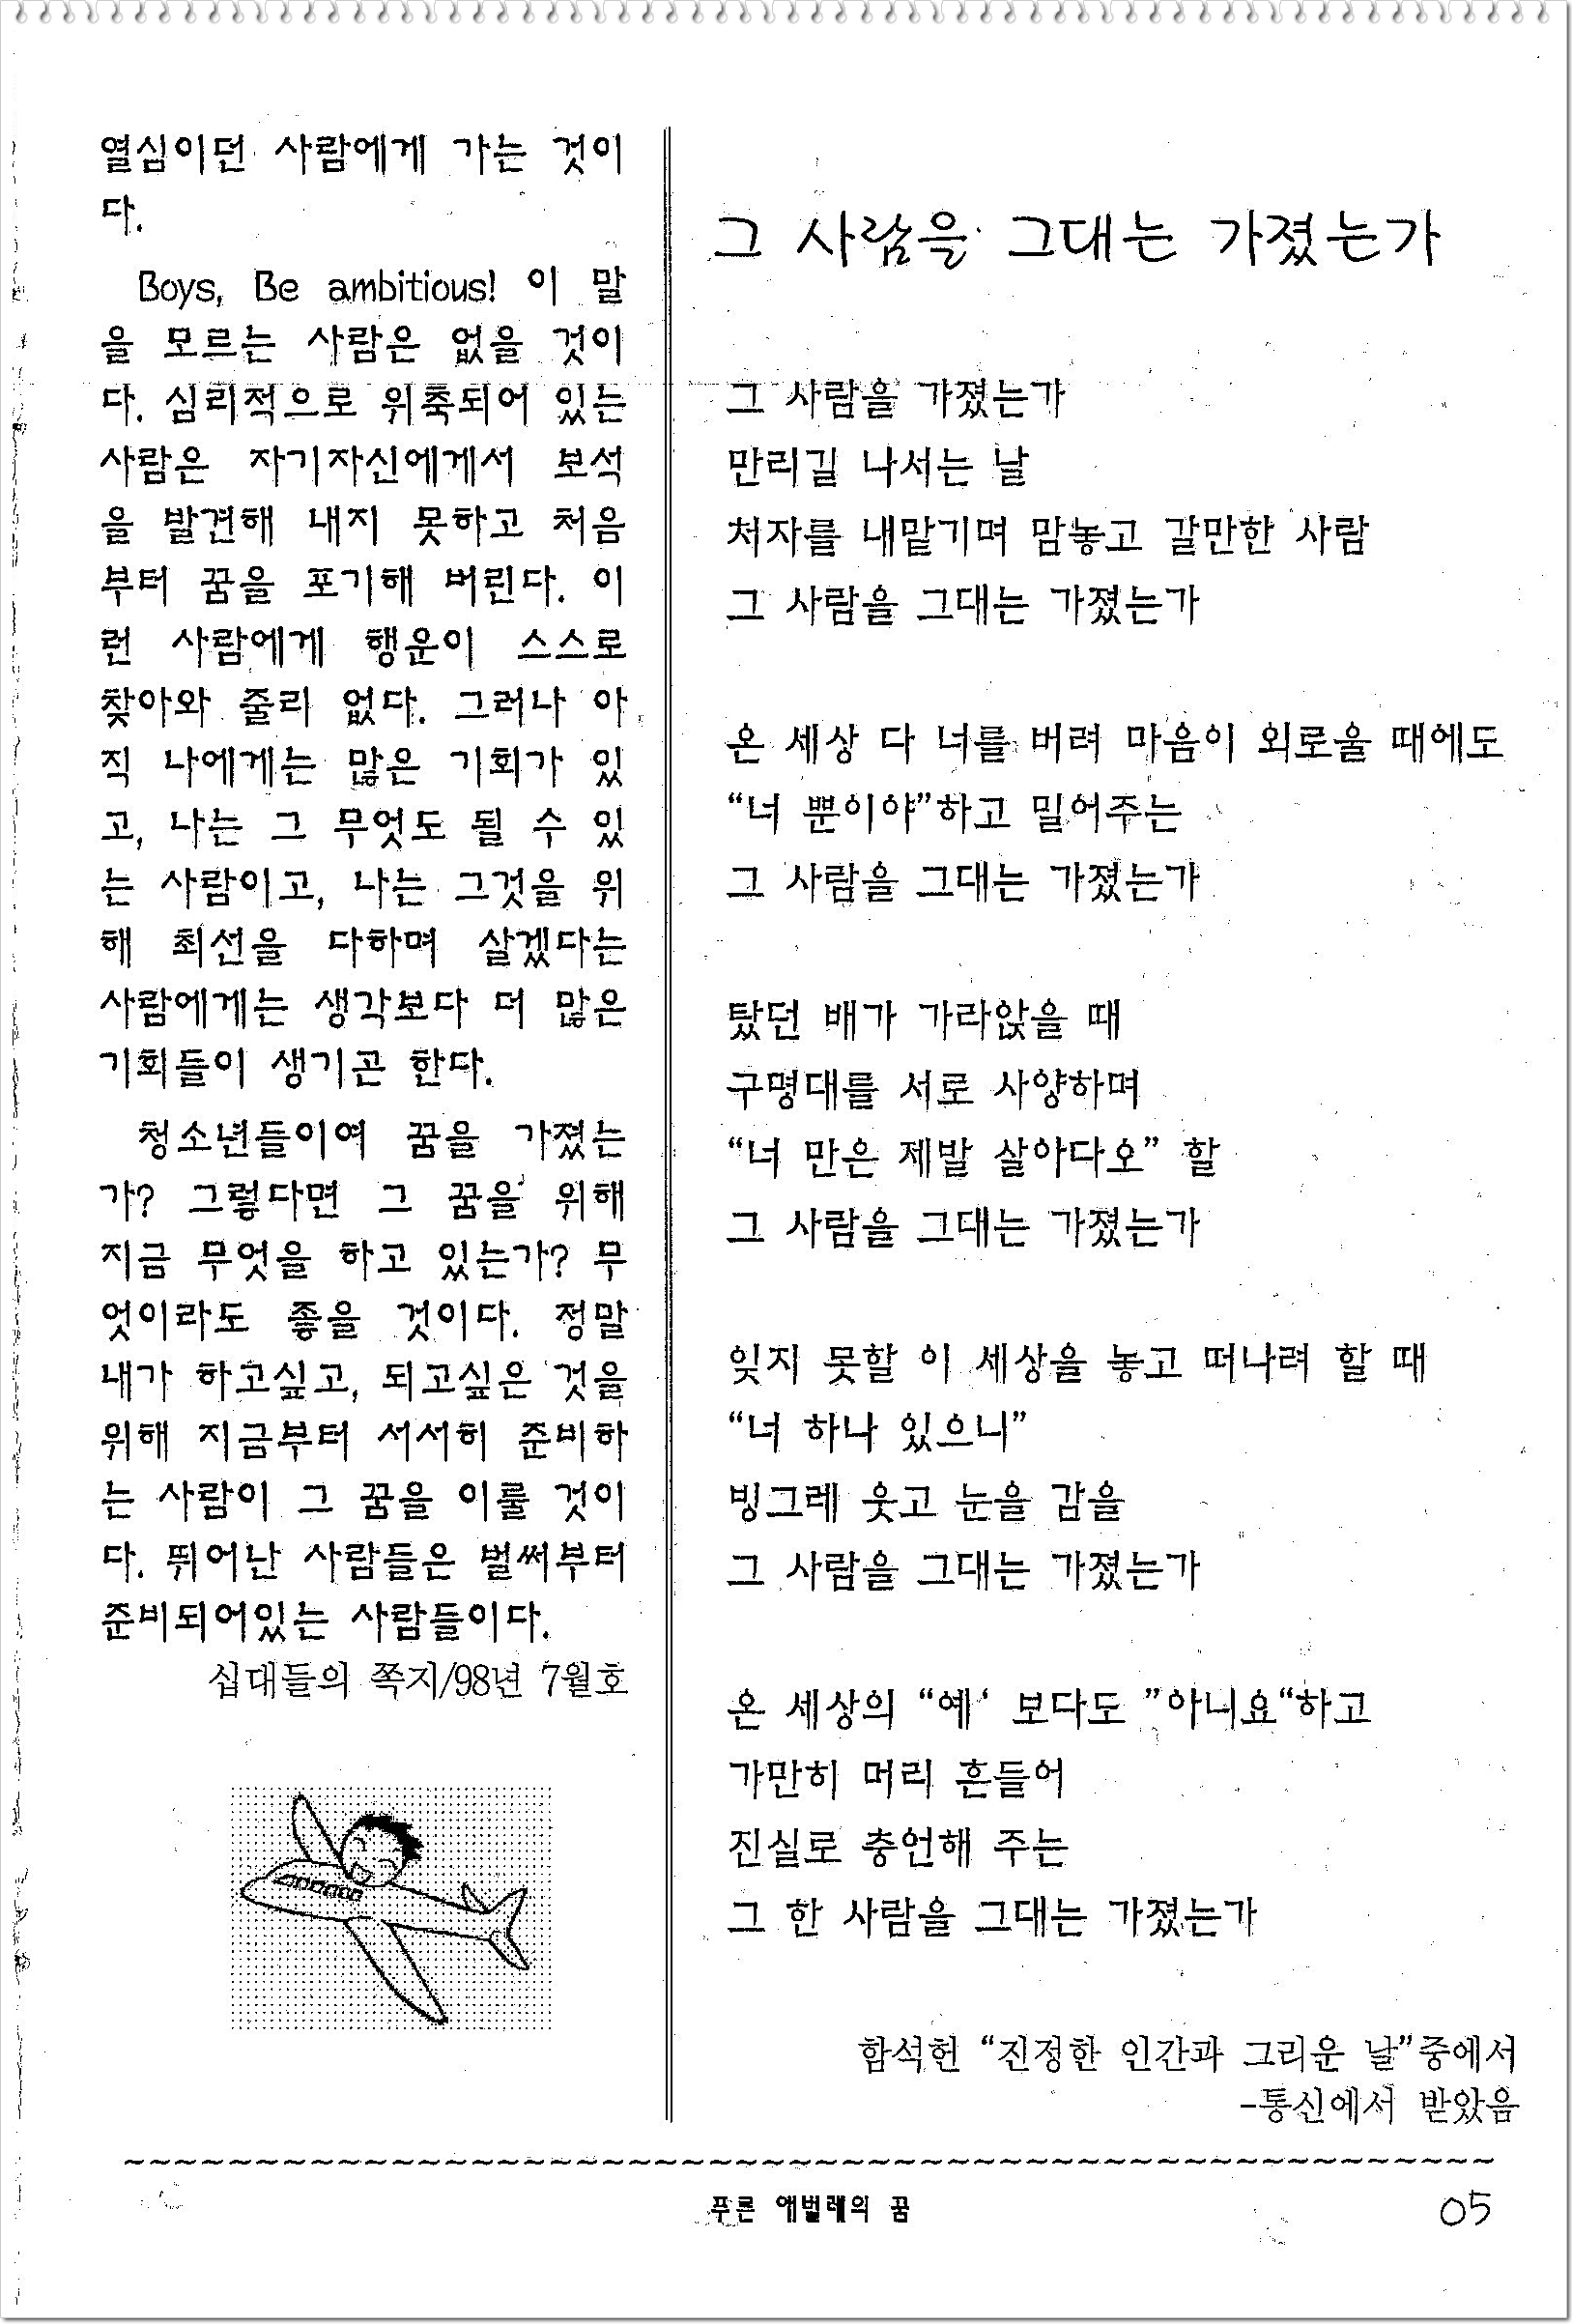 열심이던 사람에게 가는 것이
다.
Boys, Be ambitious! 이 말
을 모르는 사람은 없을 것이
다. 심리적으로 위축되어 있는
사람은 자기자신에게서 보석
을 발견해 내지 못하고 처음
부터 꿈을 포기해 버린다. 이
런 사람에게 행운이 스스로
찾아와 줄리 없다. 그러나 아
직 나에게는 많은 기회가 있
고, 나는 그 무엇도 될 수 있
는 사람이고, 나는 그것을 위
해 최선을 다하며 살겠다는
사람에게는 생각보다 더 많은
기회들이 생기곤 한다.
청소년들이여 꿈을 가졌는
가? 그렇다면 그 꿈을 위해
지금 무엇을 하고 있는가? 무
엇이라도 좋을 것이다. 정말
내가 하고싶고, 되고싶은 것을
위해 지금부터 서서히 준비하
는 사람이 그 꿈을 이룰 것이
다. 뛰어난 사람들은 벌써부터
준비되어있는 사람들이다.
십대들의 쪽지/98년 7월호
그 사람을 그대는 가졌는가
그 사람을 가졌는가
만리길 나서는 날
처자를 내맡기며 맘놓고 갈만한 사람
그 사람을 그대는 가졌는가
온 세상 다 너를 버려 마음이 외로울 때에도
“너 뿐이야”하고 밀어주는
그 사람을 그대는 가졌는가
탔던 배가 가라앉을 때
구명대를 서로 사양하며
“너 만은 제발 살아다오” 할
그 사람을 그대는 가졌는가
잊지 못할 이 세상을 놓고 떠나려 할 때
“너 하나 있으니”
빙그레 웃고 눈을 감을
그 사람을 그대는 가졌는가
온 세상의 “예‘ 보다도 ”아니요“하고
가만히 머리 흔들어
진실로 충언해 주는
그 한 사람을 그대는 가졌는가
함석헌 “진정한 인간과 그리운 날”중에서
-통신에서 받았음
푸른 애벌레의 꿈
05